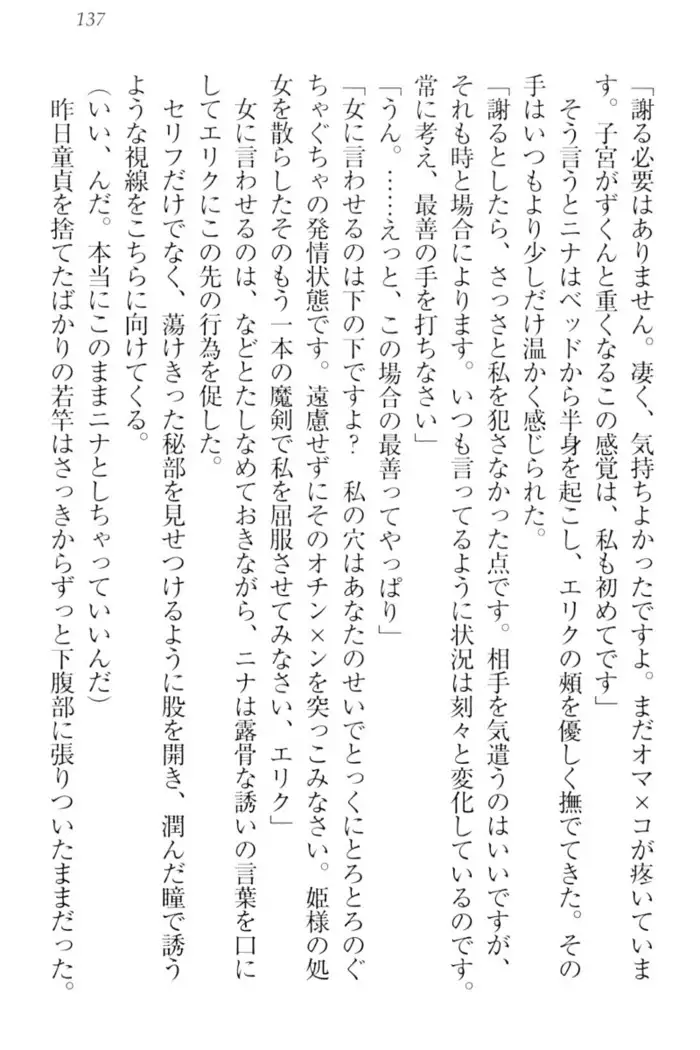 137
「謝る必要はありません。凄く、気持ちよかったですよ。まだオマ×コが疼いていま
す。子宮がずくんと重くなるこの感覚は、私も初めてです」
そう言うとニナはベッドから半身を起こし、エリクの頰を優しく撫でてきた。その
手はいつもより少しだけ温かく感じられた。
「謝るとしたら、さっさと私を犯さなかった点です。相手を気遣うのはいいですが、
それも時と場合によります。いつも言ってるように状況は刻々と変化しているのです。
常に考え、最善の手を打ちなさい」
「うん。……えっと、この場合の最善ってやっぱり」
「女に言わせるのは下の下ですよ？　私の穴はあなたのせいでとっくにとろとろのぐ
ちゃぐちゃの発情状態です。遠慮せずにそのオチン×ンを突っこみなさい。姫様の処
女を散らしたそのもう一本の魔剣で私を屈服させてみなさい、エリク」
女に言わせるのは、などとたしなめておきながら、ニナは露骨な誘いの言葉を口に
してエリクにこの先の行為を促した。
セリフだけでなく、蕩けきった秘部を見せつけるように股を開き、潤んだ瞳で誘う
ような視線をこちらに向けてくる。
（いい、んだ。本当にこのままニナとしちゃっていいんだ）
昨日童貞を捨てたばかりの若竿はさっきからずっと下腹部に張りついたままだった。